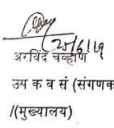 25/6/19
अरविंद चव्हाण
उप क व सं (संगणक
/(मुख्यालय)